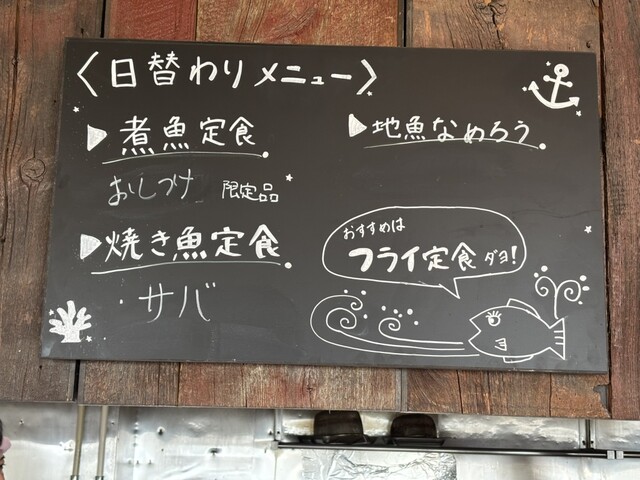 〈日替わりメニュー〉
▶煮魚定食
おしつけ 限定品
▶焼き魚定食
・サバ
▶地魚なめろう
おすすめは
フライ定食 ダヨ!